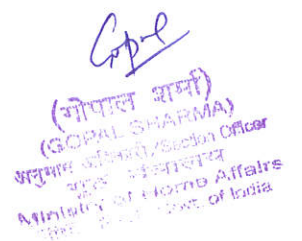 Gopal
(गोपाल शर्मा)
(GOPAL SHARMA)
अनुभाग अधिकारी/Section Officer
गृह मंत्रालय
Ministry of Home Affairs
Govt. of India